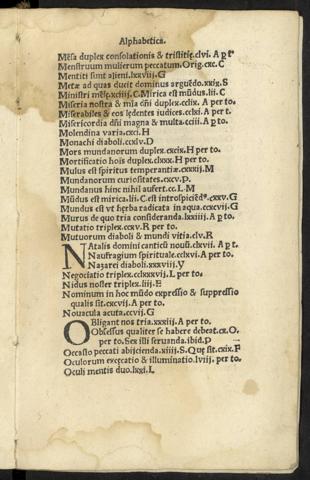 Alphabetica.
Mēsa duplex consolationis & tristitię.clvi. A p̄ t°.
Menstruum mulierum peccatum. Orig.cxc. C
Mentiti sunt alieni.lxxviij.G
Metæ ad quas ducit dominus arguēdo.xxix.S
Ministri mēsę.xciiij.C.Mirica est mūdus.lii. C
Miseria nostra & mia dn̄i duplex.cclix. A per to.
Miserabiles & eos lędentes iudices.cclxi. A per t.
Misericordia dn̄i magna & multa.cciii. A p̄ to.
Molendina varia.cxci.H
Monachi diaboli.ccxlv.D
Mors mundanorum duplex.cxcix.H per to.
Mortificatio hoīs duplex.clxxx.H per to.
Mulus est spiritus temperantiæ.cxxxij.M
Mundanorum curiositates.cxcv.p.
Mundanus hinc nihil aufert.cc.L.M
Mūdus est mirica.lii.C.est introspiciēdꝰ.cxxv.G
Mundus est vt herba radicata in aqua.ccxcvij.G
Murus de quo tria consideranda.lxxiiij.A p̄ to.
Mutatio triplex.ccxv.R per to.
Mutuorum diaboli & mundi vitia.clv.R
Natalis domini canticū nouū.clxvii. A p̄ t.
Naufragium spirituale.cclxvi.A per to.
Nazarei diaboli.xxxviij.V
Negociatio triplex.cclxxxvij.L per to.
Nidus noster triplex.liij.E
Nominum in hoc mūdo expressio & suppressio
qualis sit.cxcvi.p̄ to.
Nouacula acuta.ccvij.G
Obligant nos tria.xxxiij.A per to.
Obsessus qualiter se habere debeat.cx.O.
per to. Sex illi seruanda.ibid.p
Occasio peccati abijcienda.xiiij.S.Quę sit.cxix.F
Oculorum exęcatio & illuminatio.lviij. per to.
Oculi mentis duo.lxxi.L